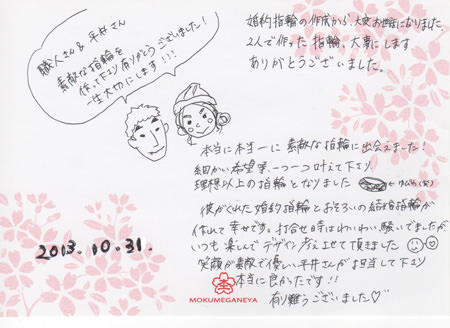 職人さん & 平井さん
素敵な指輪を
作って下さり有りがとうございました!
一生大切にします!!!
婚約指輪の作成から、大変お世話になりました。
2人で作った指輪、大事にします
ありがとうございました。
本当に本当ーに素敵な指輪に出会えました!
細かい希望等、一つ一つ叶えて下さり
理想以上の指輪となりました
彼がくれた婚約指輪とおそろいの結婚指輪が
作れて幸せです。打合せ時はわいわい騒いでましたが、
いつも楽しんでデザイン考えさせて頂きました
笑顔が素敵で優しい平井さんが担当して下さり
本当に良かったです!!
有り難うございました♡
2013.10.31.
MOKUMEGANEYA